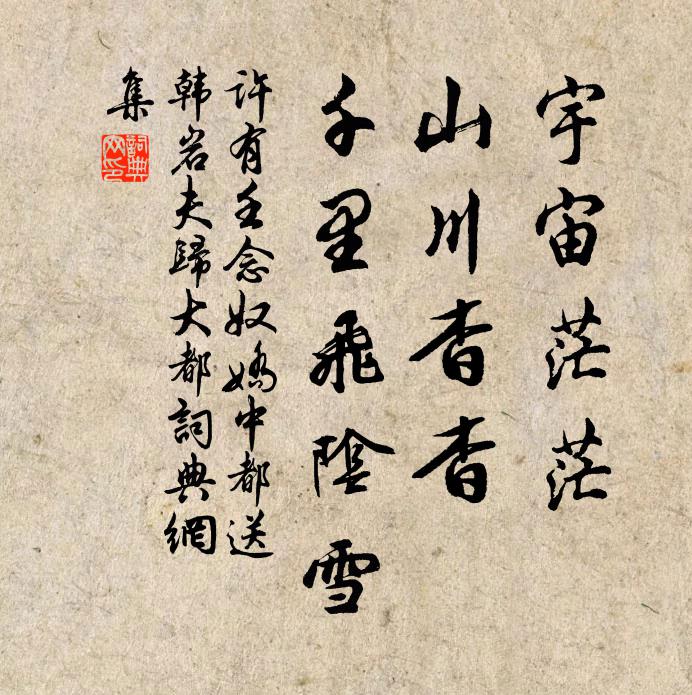 宇宙茫茫
山川杳杳
千里飛陰雪
許有壬念奴嬌中都送
韩岩夫歸大都詞典網
集
詞典網印